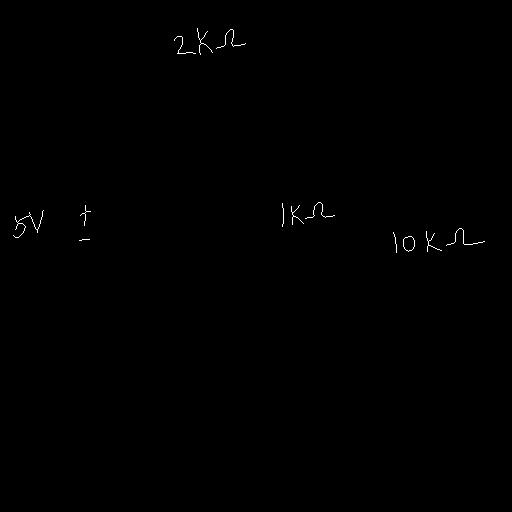 2KΩ
5V ±
1KΩ
10KΩ